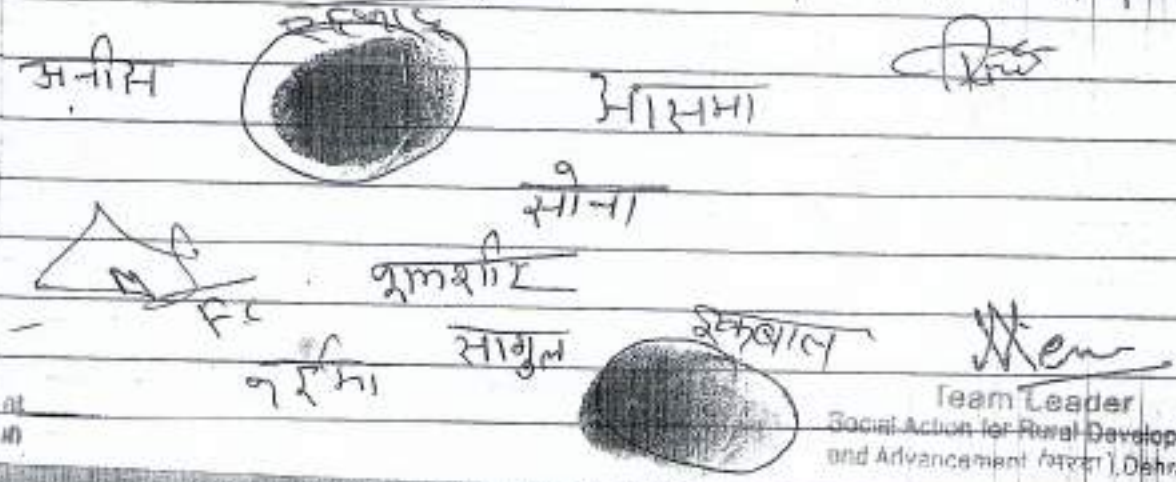 अनीस
आसमा
सोना
शमशीर
FC
सागुल
इकबाल
नईमा
Team Leader
Social Action for Rural Develop
and Advancement (सारदा), Dehr